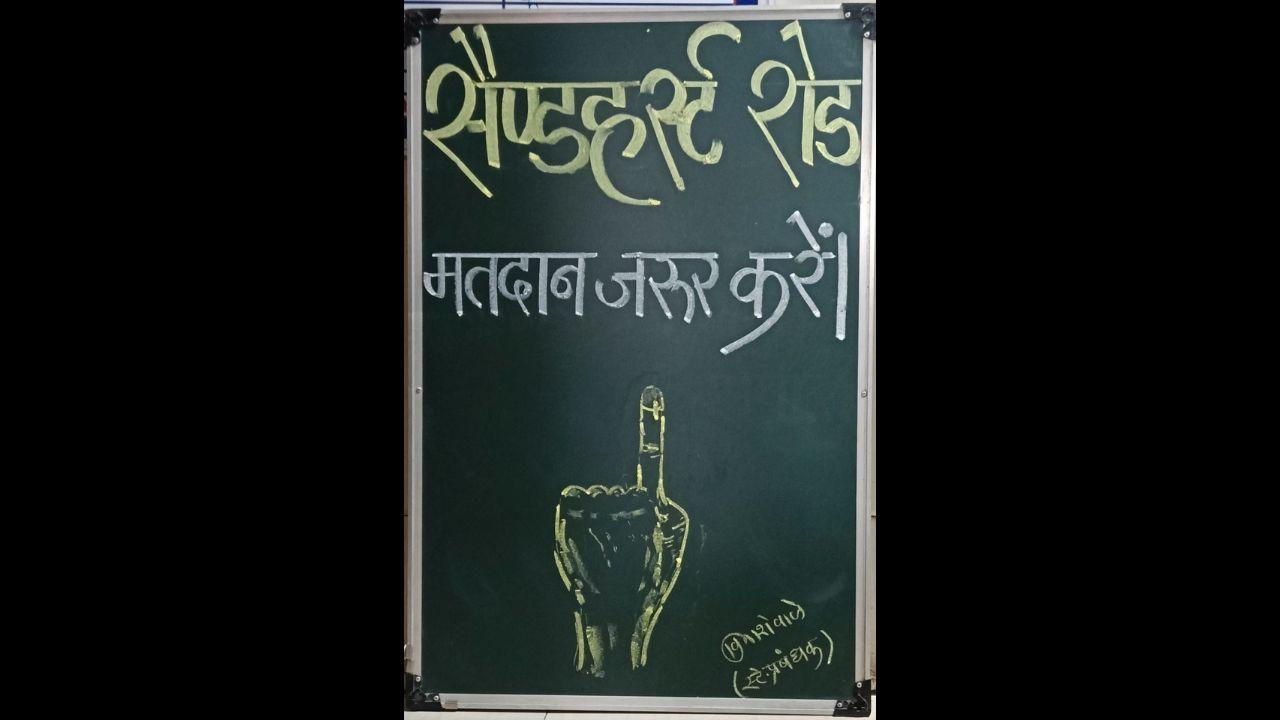 सैण्डहर्स्ट रोड
मतदान जरूर करें।
(स्टे.प्रबंधक)